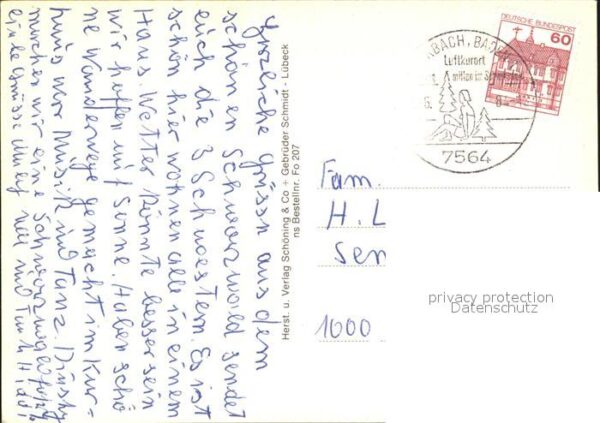 Herzliche Grüsse aus dem
schönen Schwarzwald sendet
euch die 3 Schwestern. Es ist
schön hier wohnen alle in einem
Haus. Wetter könnte besser sein
wir hoffen auf Sonne. Haben schö
ne Wanderwege gemacht im Kur-
haus war Musik und Tanz.
machen wir eine Schwarzwald
viele Grüsse und
Herst. u. Verlag Schöning & Co + Gebrüder Schmidt - Lübeck
ns Bestellnr. Fo 207
BACH, BAD
Luftkurort
mitten im Schwarzwald
7564
DEUTSCHE BUNDESPOST
60
Fam.
H. L
Sen
1000
privacy protection
Datenschutz